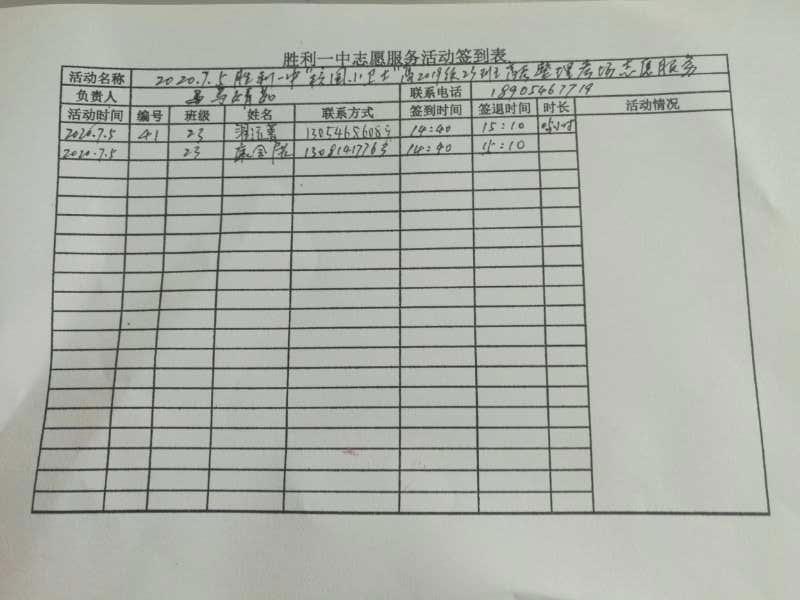 胜利一中志愿服务活动签到表
活动名称 2020.7.5胜利一中"校园小卫士"高2019级23班高考整理考场志愿服务
负责人 联系电话 18905467719
活动时间 编号 班级 姓名 联系方式 签到时间 签退时间 时长 活动情况
2020.7.5 41 23 13054656083 14:40 15:10 0.5小时
2020.7.5 23 13081417763 14:40 15:10